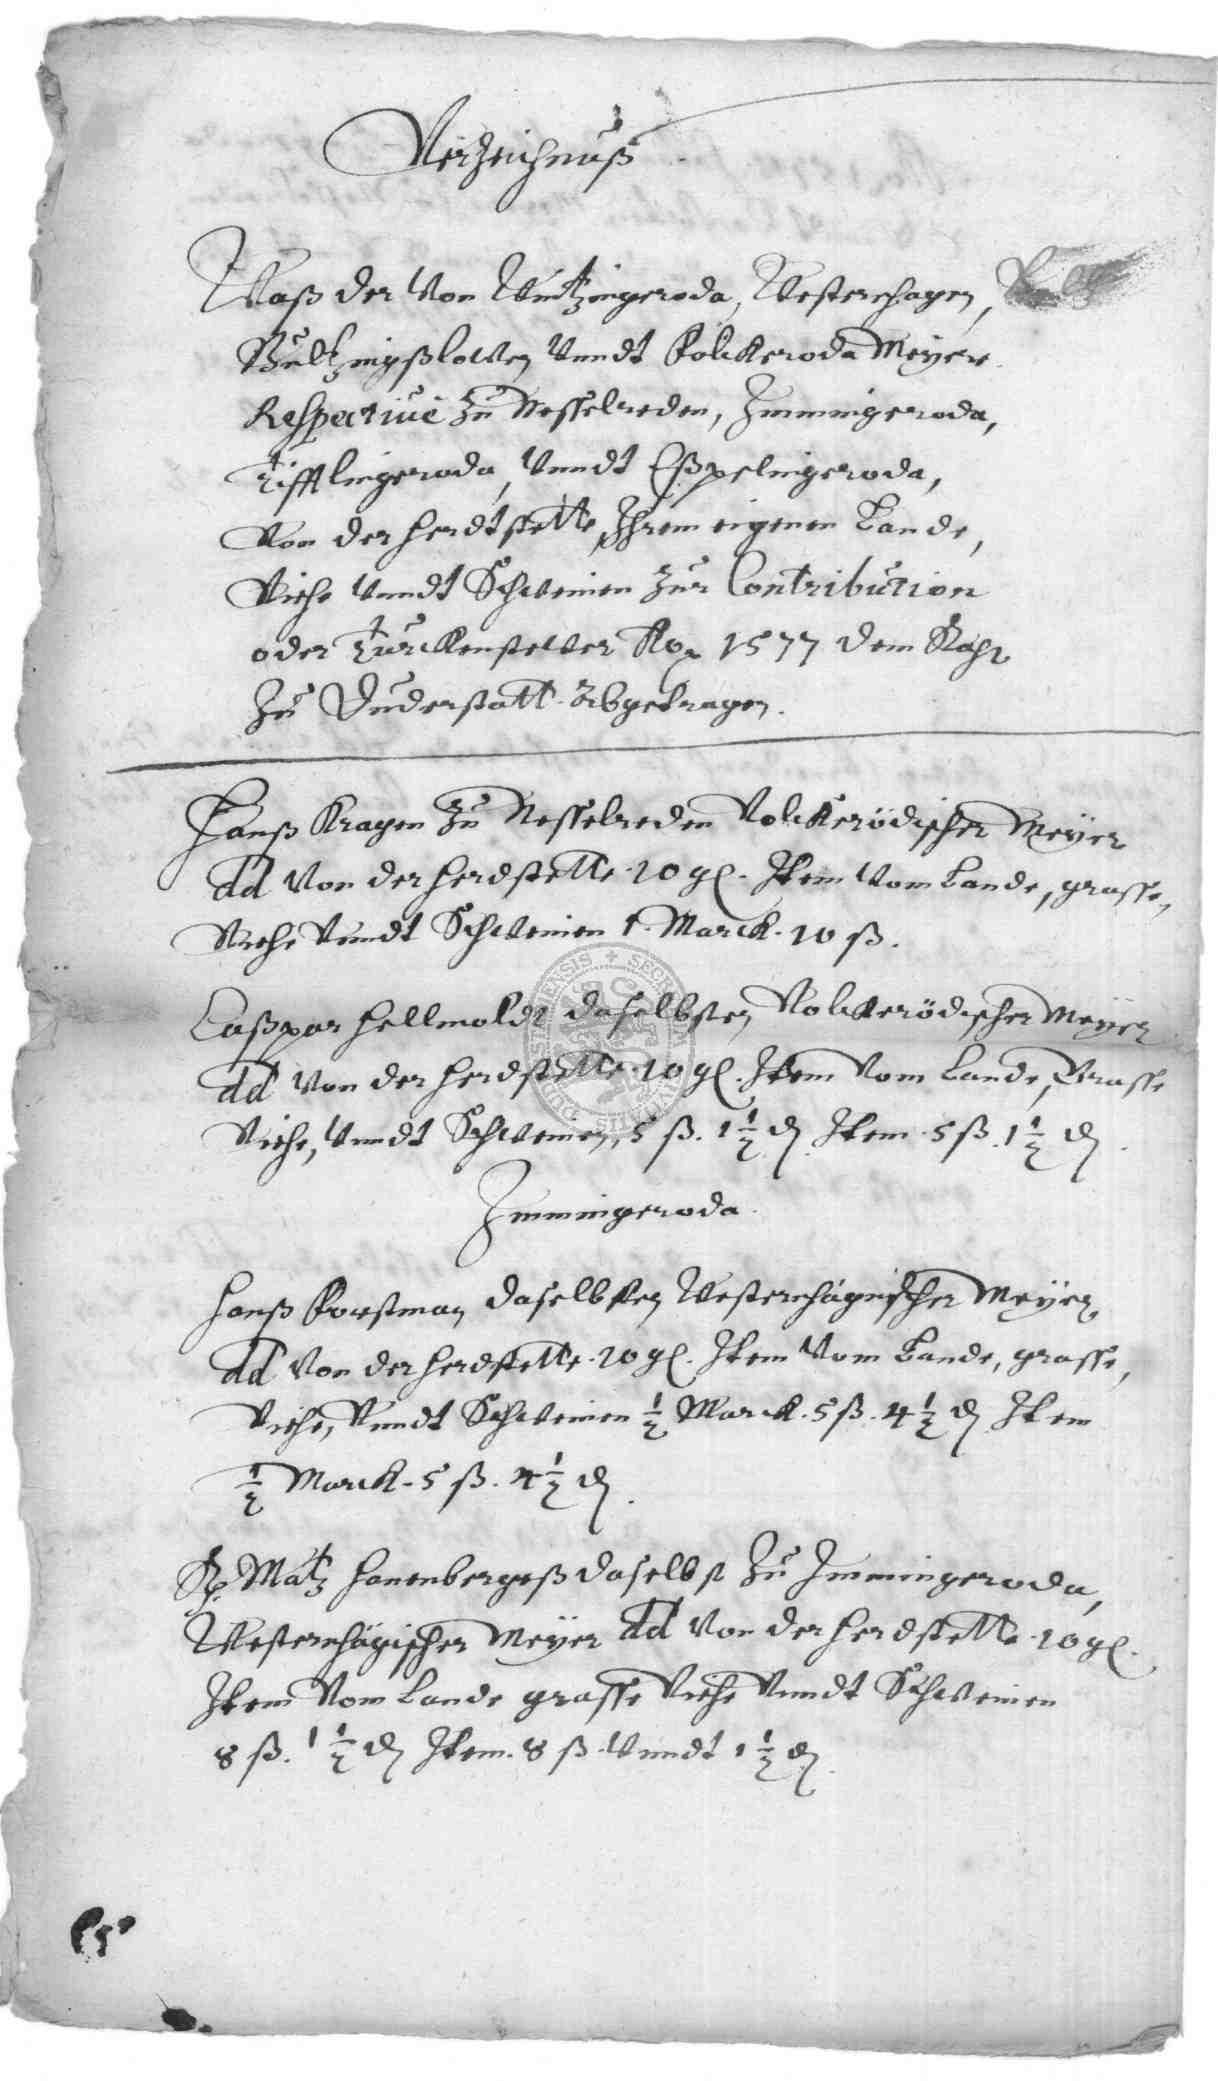 Verzeichnuß
Waß der Von Wintzingeroda, Westernhagen,
Bültzingßlöwen Vnndt Volckeroda Meyere
Respectiuè zu Nesselreden, Immingeroda,
Tifftlingeroda, Vnndt Eßpelingeroda,
Von der herdtstette, Ihrem eigenen Lande,
Viehe Vnndt Schweinen zur Contribution
oder Türckenstewer Ao 1577 dem Raht
zu Duderstatt Abgetragen.
Hanß Kragen zu Nesselreden Volckerödischer Meyer
dd Von der herdstette 10 gl. Item Vom Lande, grasse,
Viehe Vnndt Schweinen 1. Marck. 10 ß.
Caßpar Hellmoldt daselbsten Volckerödischer Meyer
dd Von der herdstette 10 gl. Item Vom Lande, Grasse
Viehe, Vnndt Schweinen, 5 ß. 1 1/2 d. Item. 5 ß. 1 1/2 d.
Immingeroda.
Hanß Forstman daselbsten Westernhägischer Meyer
dd Von der herdstette 10 gl. Item Vom Lande, grasse,
Viehe, Vnndt Schweinen 1/2 Marck. 5 ß. 4 1/2 d. Item
1/2 Marck. 5 ß. 4 1/2 d.
Matz Hanenbergeß daselbst zu Immingeroda,
Westernhägischer Meyer dd Von der herdstette 10 gl.
Item Vom Lande grasse Viehe Vnndt Schweinen
8 ß. 1 1/2 d. Item. 8 ß. Vnndt 1 1/2 d.